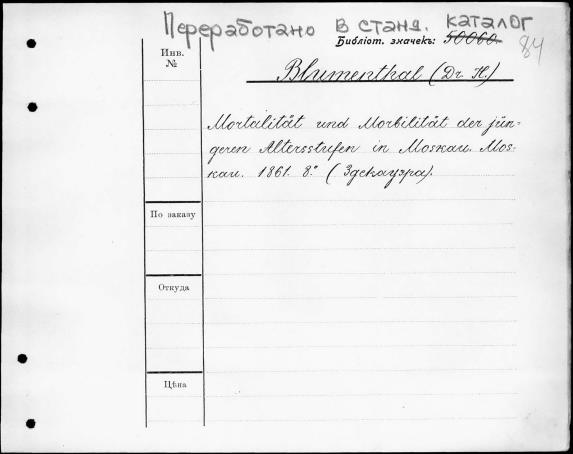 Переработано в станд. каталог
Библіот. значекъ: 50060.
84
Инв.
№
Blumenthal (Dr. H.)
Mortalität und Morbilität der jün-
geren Altersstufen in Moskau. Mos-
kau. 1861. 8.° (Здекауэра).
По заказу
Откуда
Цѣна